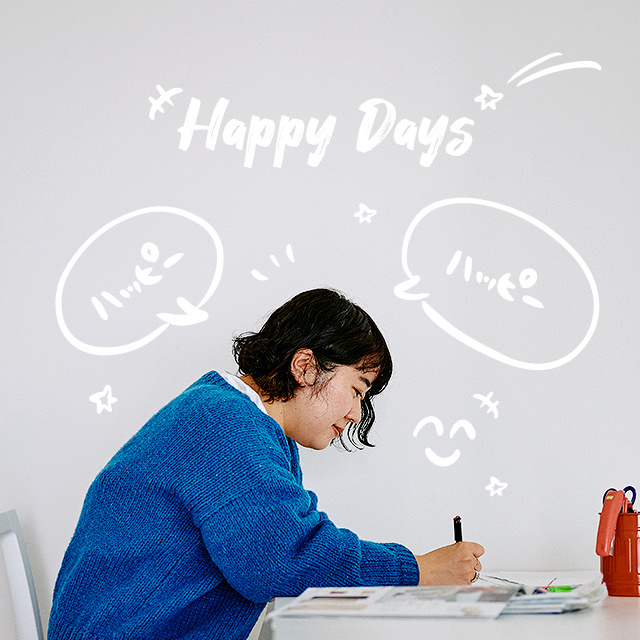 Happy Days
ハッピー
ハッピー